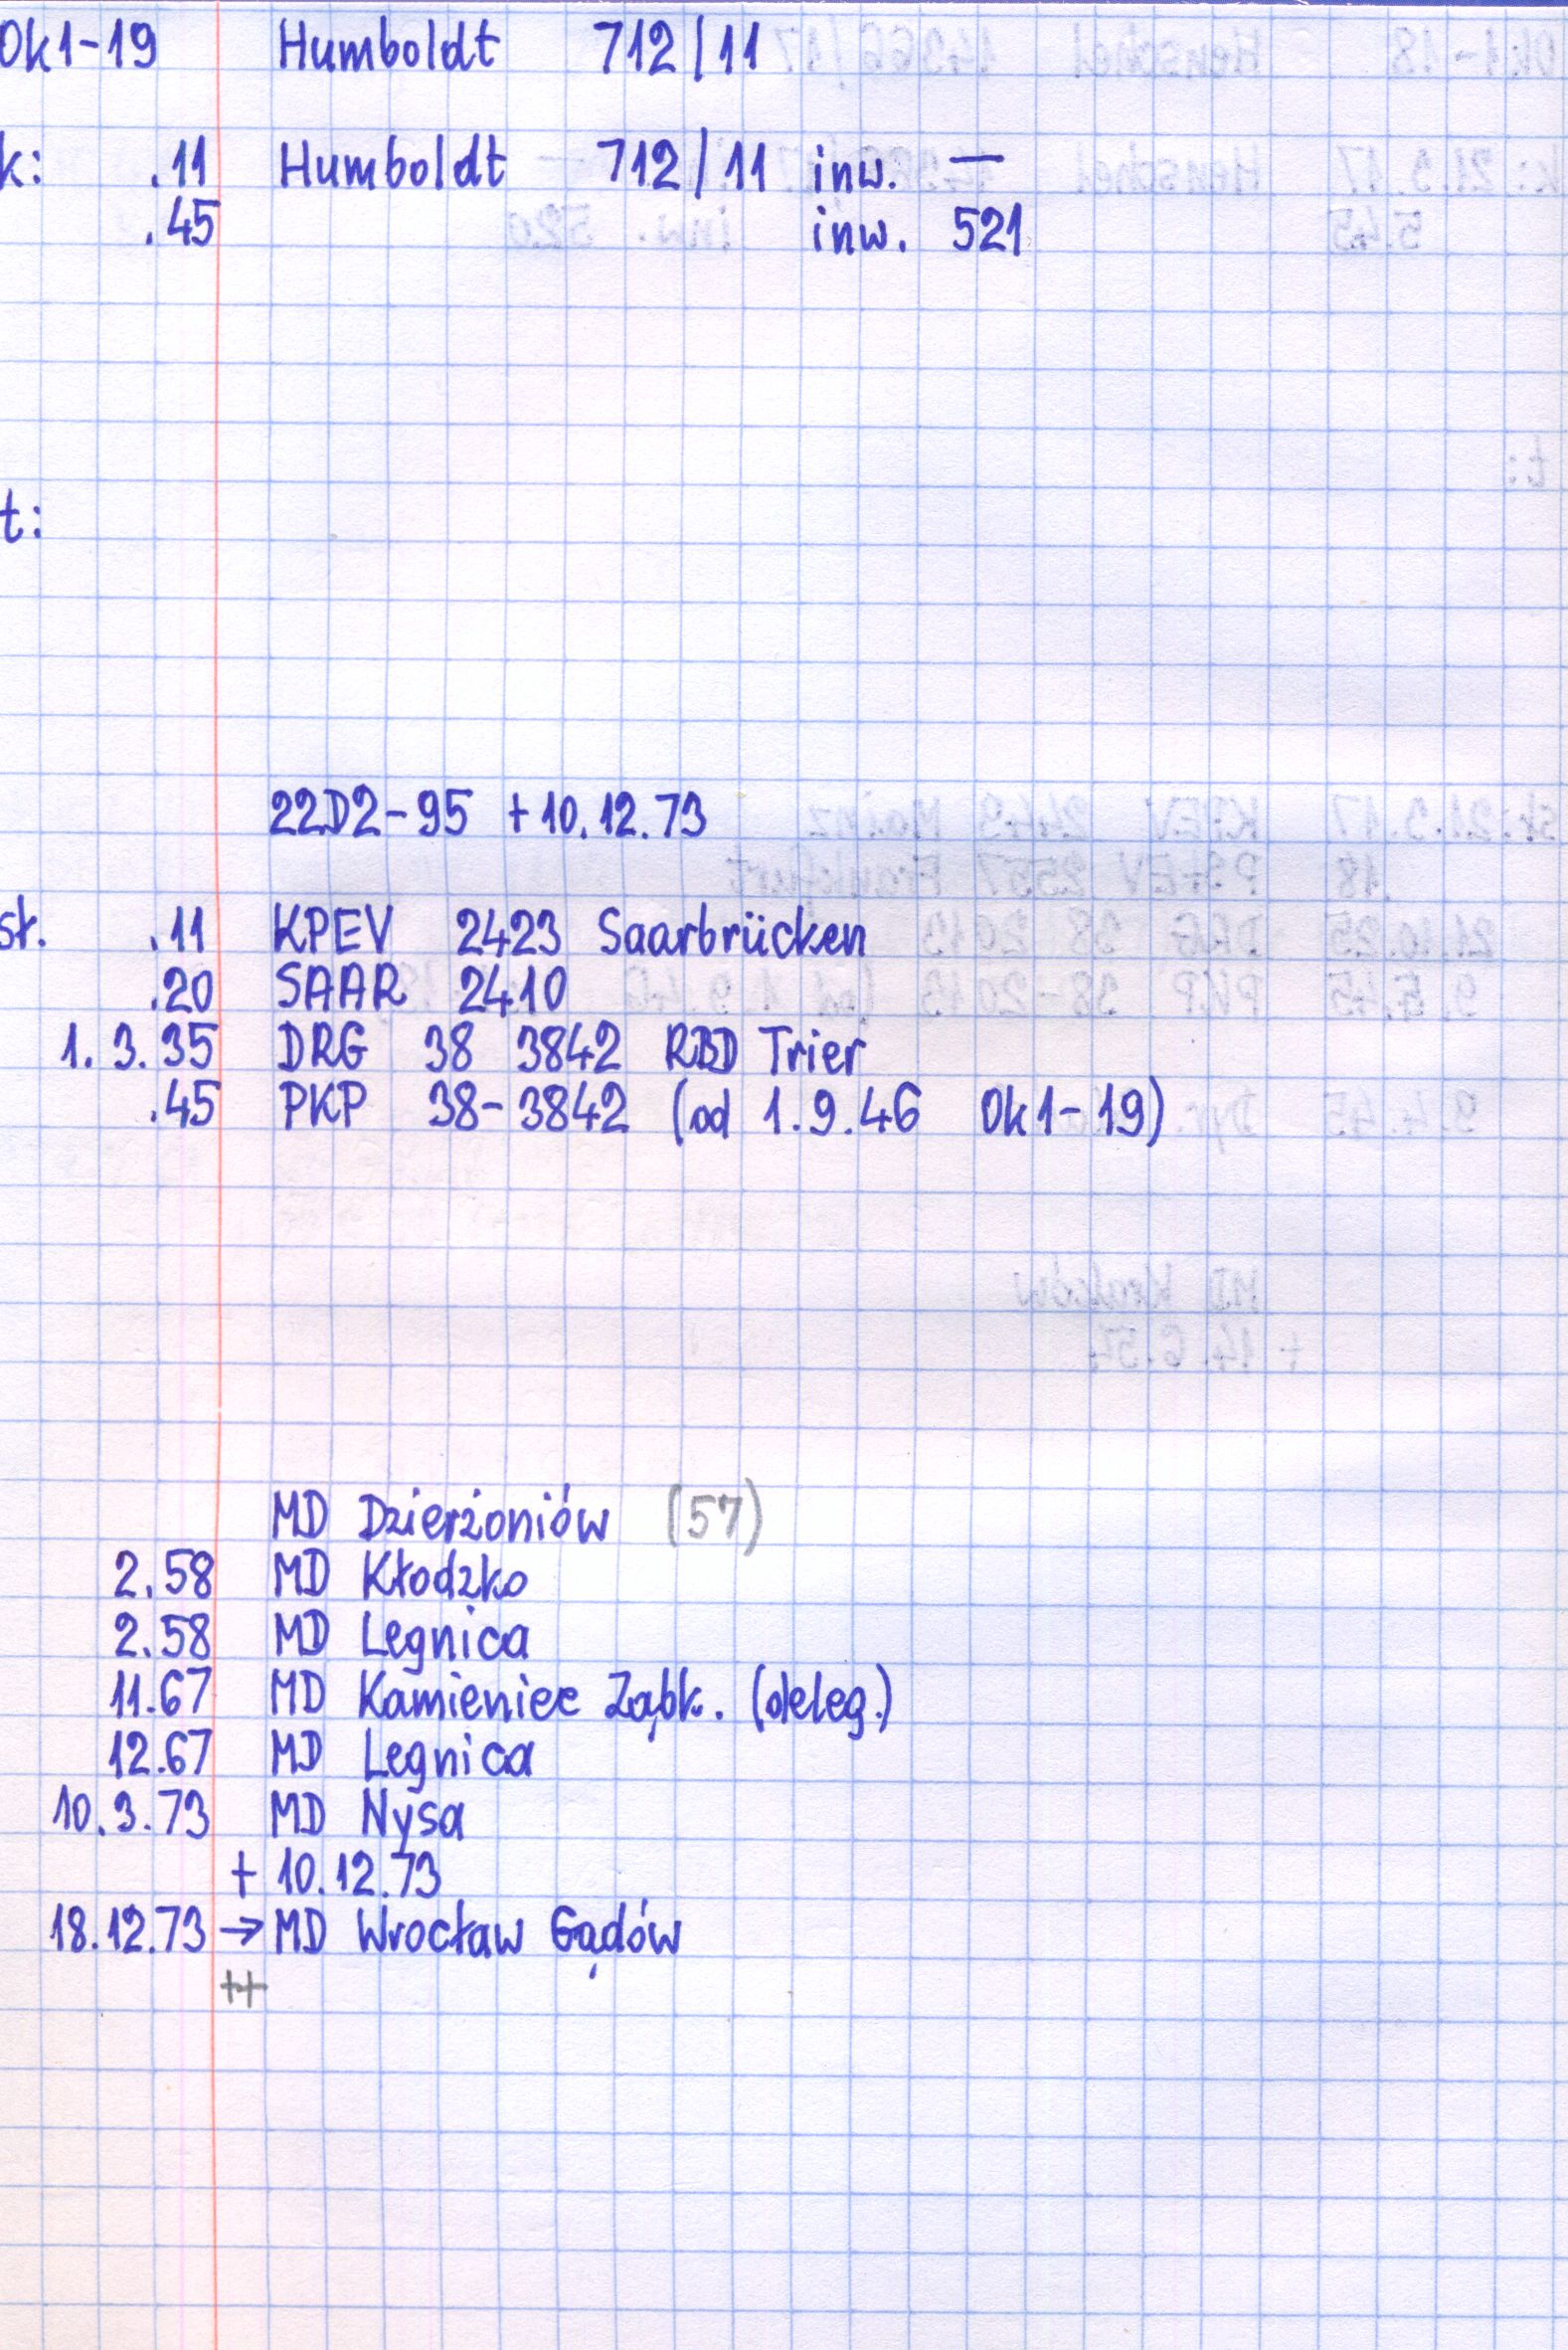 Ok1-19 Humboldt 712/11
k: .11 Humboldt 712/11 inw. —
.45 inw. 521
t:
22D2-95 +10.12.73
st. .11 KPEV 2423 Saarbrücken
.20 SAAR 2410
1.3.35 DRG 38 3842 RBD Trier
.45 PKP 38-3842 (od 1.9.46 Ok1-19)
MD Dzierżoniów (57)
2.58 MD Kłodzko
2.58 MD Legnica
11.67 MD Kamieniec Ząbk. (deleg.)
12.67 MD Legnica
10.3.73 MD Nysa
+ 10.12.73
18.12.73 → MD Wrocław Gądów
++